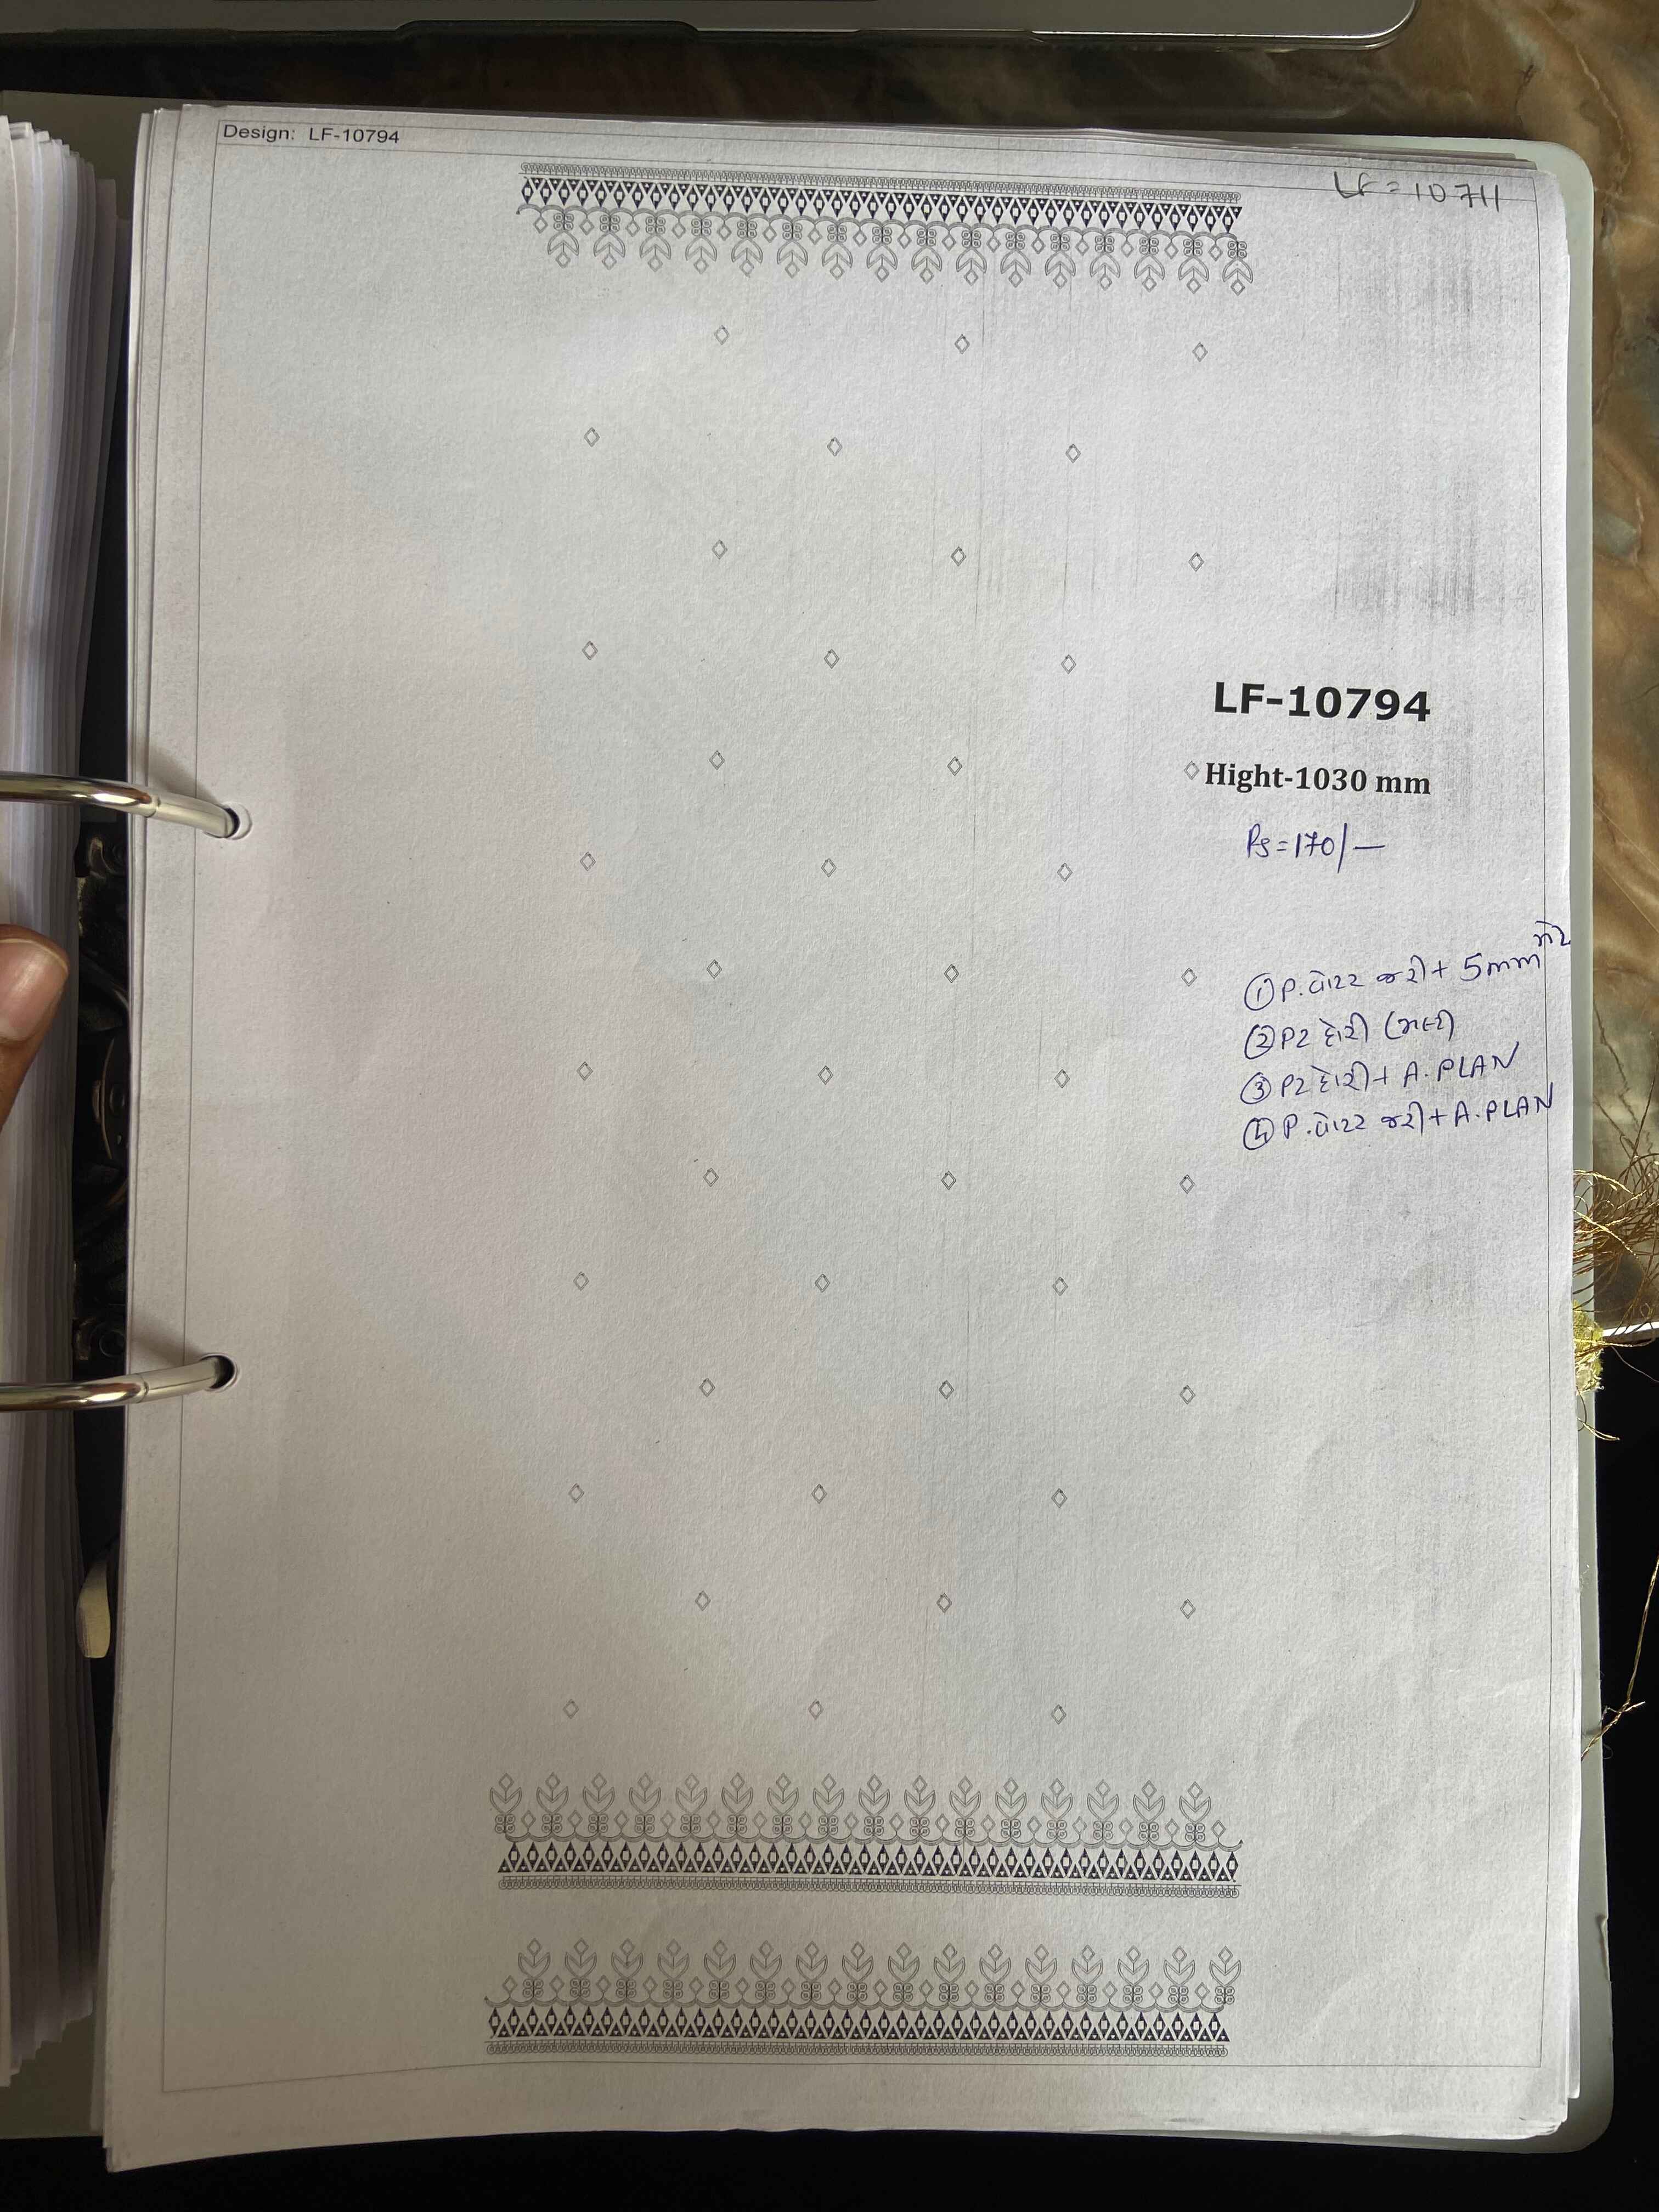 Design: LF-10794
LF = 10711
LF-10794
Hight-1030 mm
Rs = 170/-
① P. વોટર જરી + 5mm
② P2 દોરી
③ P2 દોરી + A.PLAN
④ P. વોટર જરી + A.PLAN